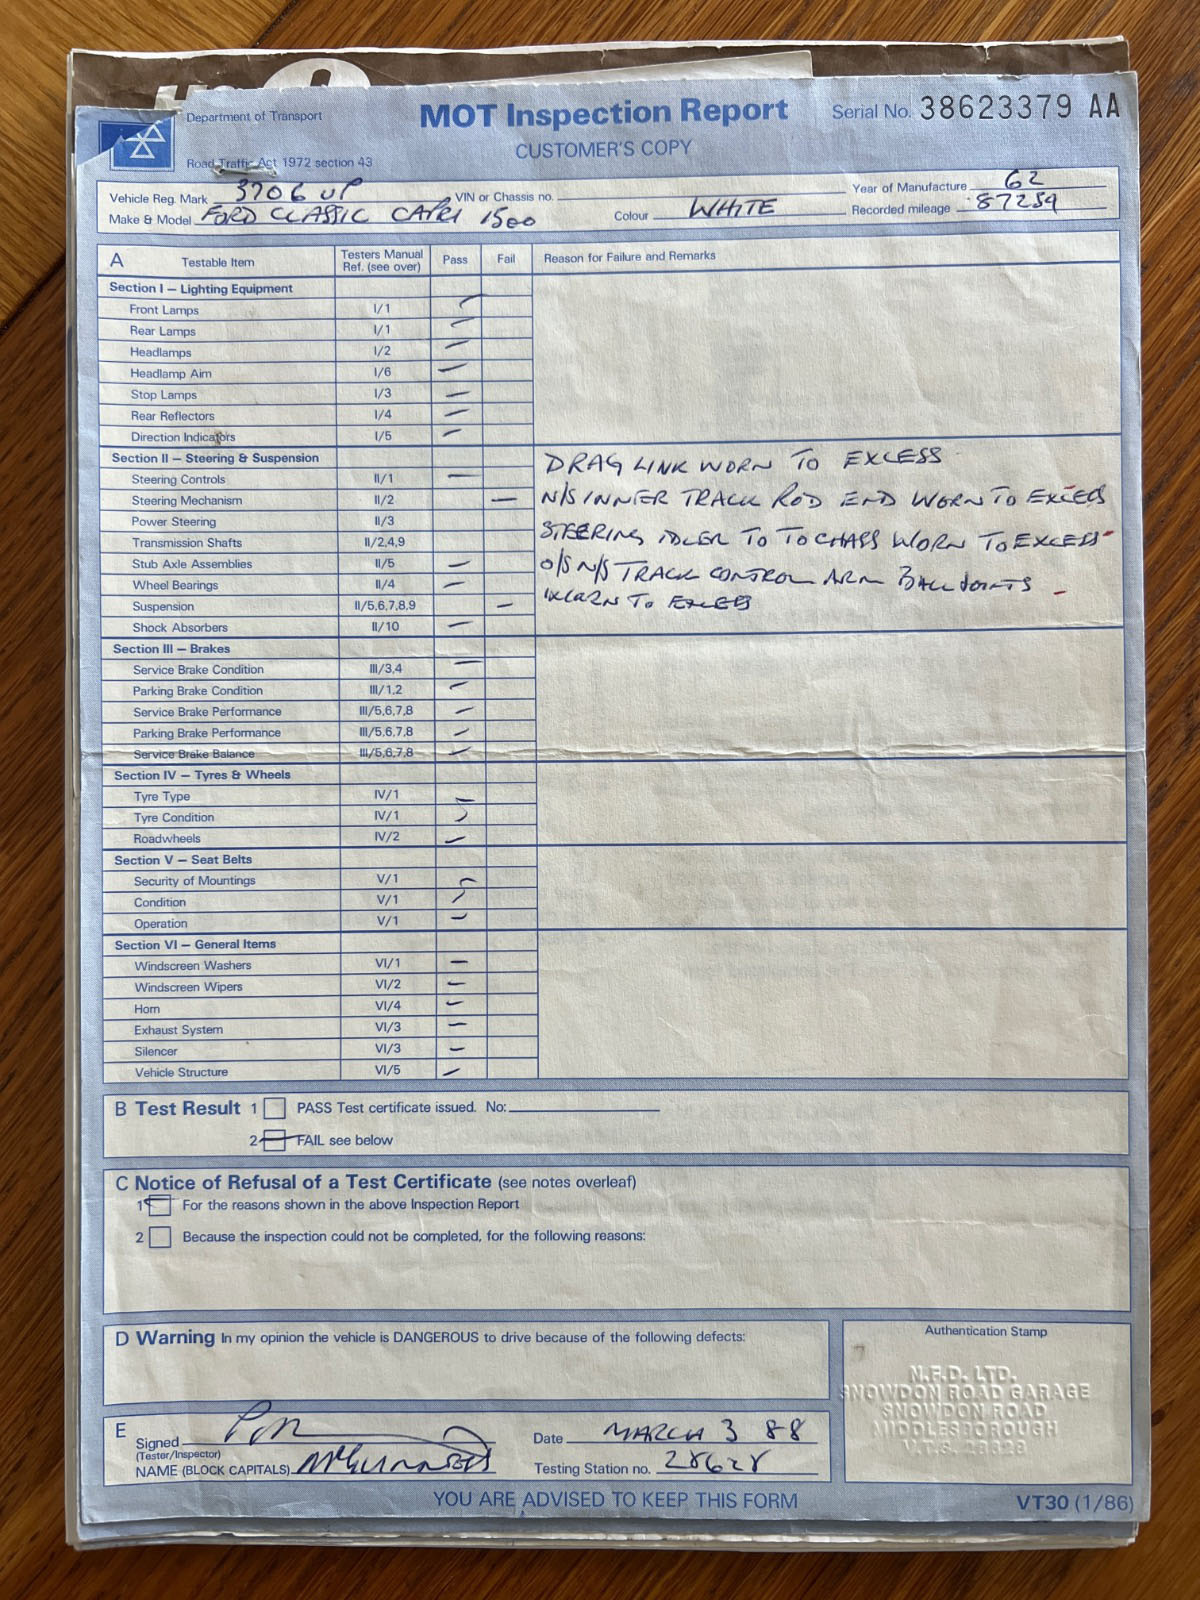 Department of Transport
MOT Inspection Report
Serial No. 38623379 AA
CUSTOMER'S COPY
Road Traffic Act 1972 section 43
Vehicle Reg. Mark 3706 UP VIN or Chassis no. Year of Manufacture 62
Make & Model FORD CLASSIC CAPRI 1500 Colour WHITE Recorded mileage 87259
A Testable Item Testers Manual Ref. (see over) Pass Fail Reason for Failure and Remarks
Section I – Lighting Equipment
Front Lamps I/1
Rear Lamps I/1
Headlamps I/2
Headlamp Aim I/6
Stop Lamps I/3
Rear Reflectors I/4
Direction Indicators I/5
Section II – Steering & Suspension
Steering Controls II/1
Steering Mechanism II/2
Power Steering II/3
Transmission Shafts II/2,4,9
Stub Axle Assemblies II/5
Wheel Bearings II/4
Suspension II/5,6,7,8,9
Shock Absorbers II/10
DRAG LINK WORN TO EXCESS
N/S INNER TRACK ROD END WORN TO EXCESS
STEERING IDLER TO TO CHASS WORN TO EXCESS
O/S N/S TRACK CONTROL ARM BALL JOINTS
WORN TO EXCESS
Section III – Brakes
Service Brake Condition III/3,4
Parking Brake Condition III/1,2
Service Brake Performance III/5,6,7,8
Parking Brake Performance III/5,6,7,8
Service Brake Balance III/5,6,7,8
Section IV – Tyres & Wheels
Tyre Type IV/1
Tyre Condition IV/1
Roadwheels IV/2
Section V – Seat Belts
Security of Mountings V/1
Condition V/1
Operation V/1
Section VI – General Items
Windscreen Washers VI/1
Windscreen Wipers VI/2
Horn VI/4
Exhaust System VI/3
Silencer VI/3
Vehicle Structure VI/5
B Test Result 1 PASS Test certificate issued. No:
2 FAIL see below
C Notice of Refusal of a Test Certificate (see notes overleaf)
1 For the reasons shown in the above Inspection Report
2 Because the inspection could not be completed, for the following reasons:
D Warning In my opinion the vehicle is DANGEROUS to drive because of the following defects:
Authentication Stamp
N.F.D. LTD.
SNOWDON ROAD GARAGE
SNOWDON ROAD
MIDDLESBOROUGH
E Signed
(Tester/Inspector)
NAME (BLOCK CAPITALS)
Date MARCH 3 88
Testing Station no. 28628
YOU ARE ADVISED TO KEEP THIS FORM
VT30 (1/86)